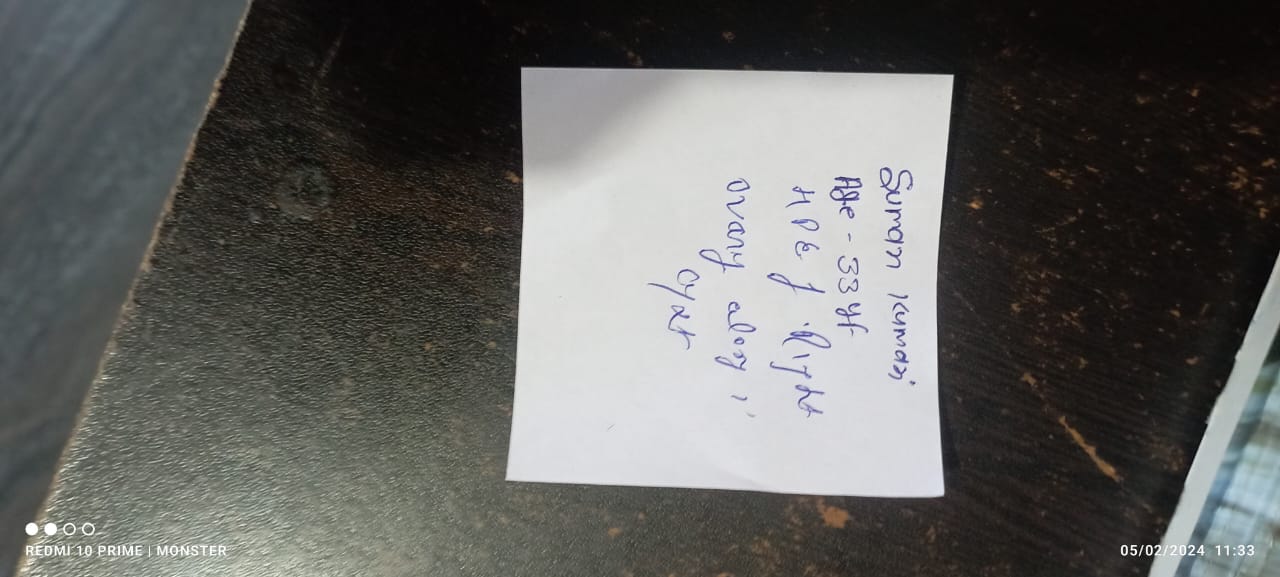 Suman Kumari
Age - 33 yf
HPE of Right
ovary along c̄
cyst
REDMI 10 PRIME | MONSTER
05/02/2024 11:33